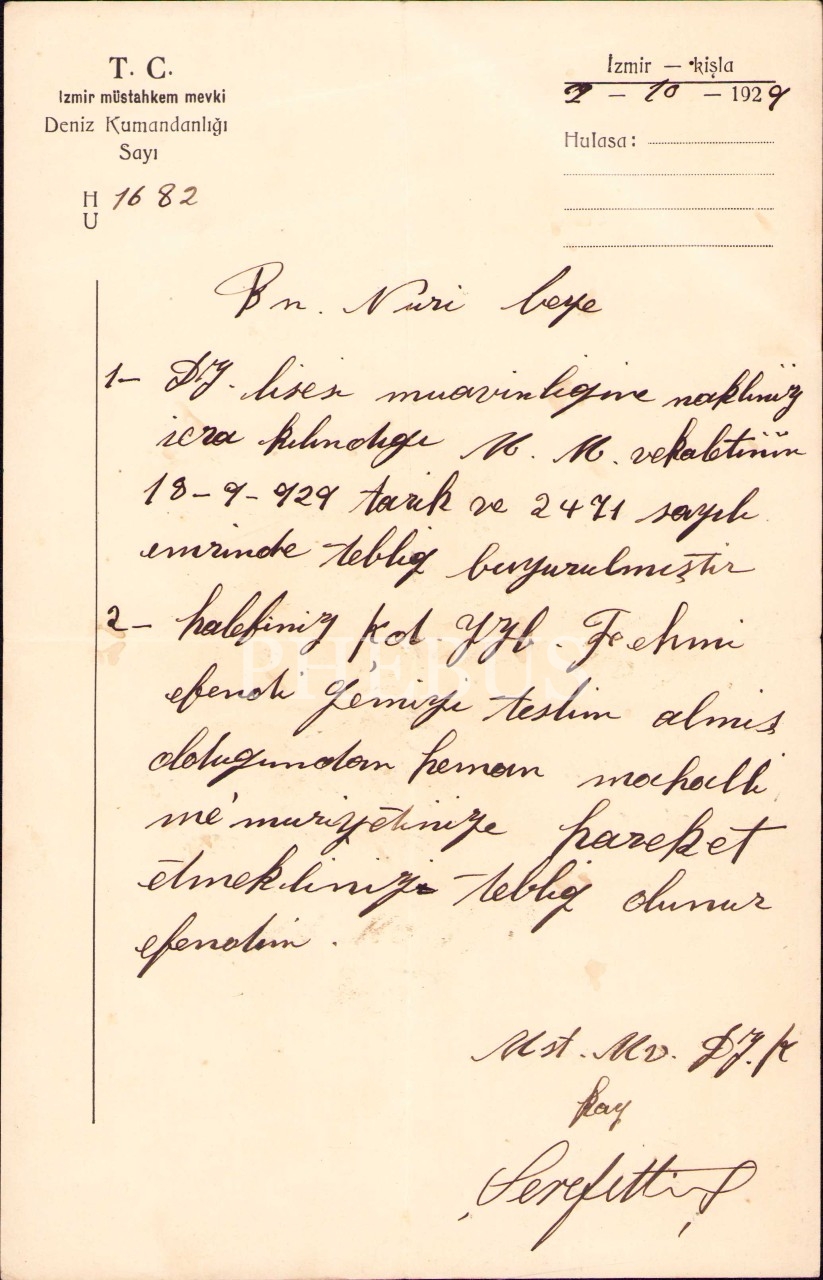 T. C.
Izmir müstahkem mevki
Deniz Kumandanlığı
Sayı
H 1682
U
İzmir — kişla
2 — 10 — 1929
Hulasa:
Bn. Nuri beye
1— Dz. lisesi muavinligine nakliniz
icra kılındıgı M. M. vekaletinin
18-9-929 tarih ve 2471 sayılı
emrinde teblig buyurulmuştir
2— halefiniz Kd. Yzb. Fehmi
efendi gemiyi teslim almış
oldugundan heman mahalli
me'muriyetinize hareket
etmekliniz teblig olunur
efendim.
PHEBUS
Mst. Mv. Dz. K
Şerefettin